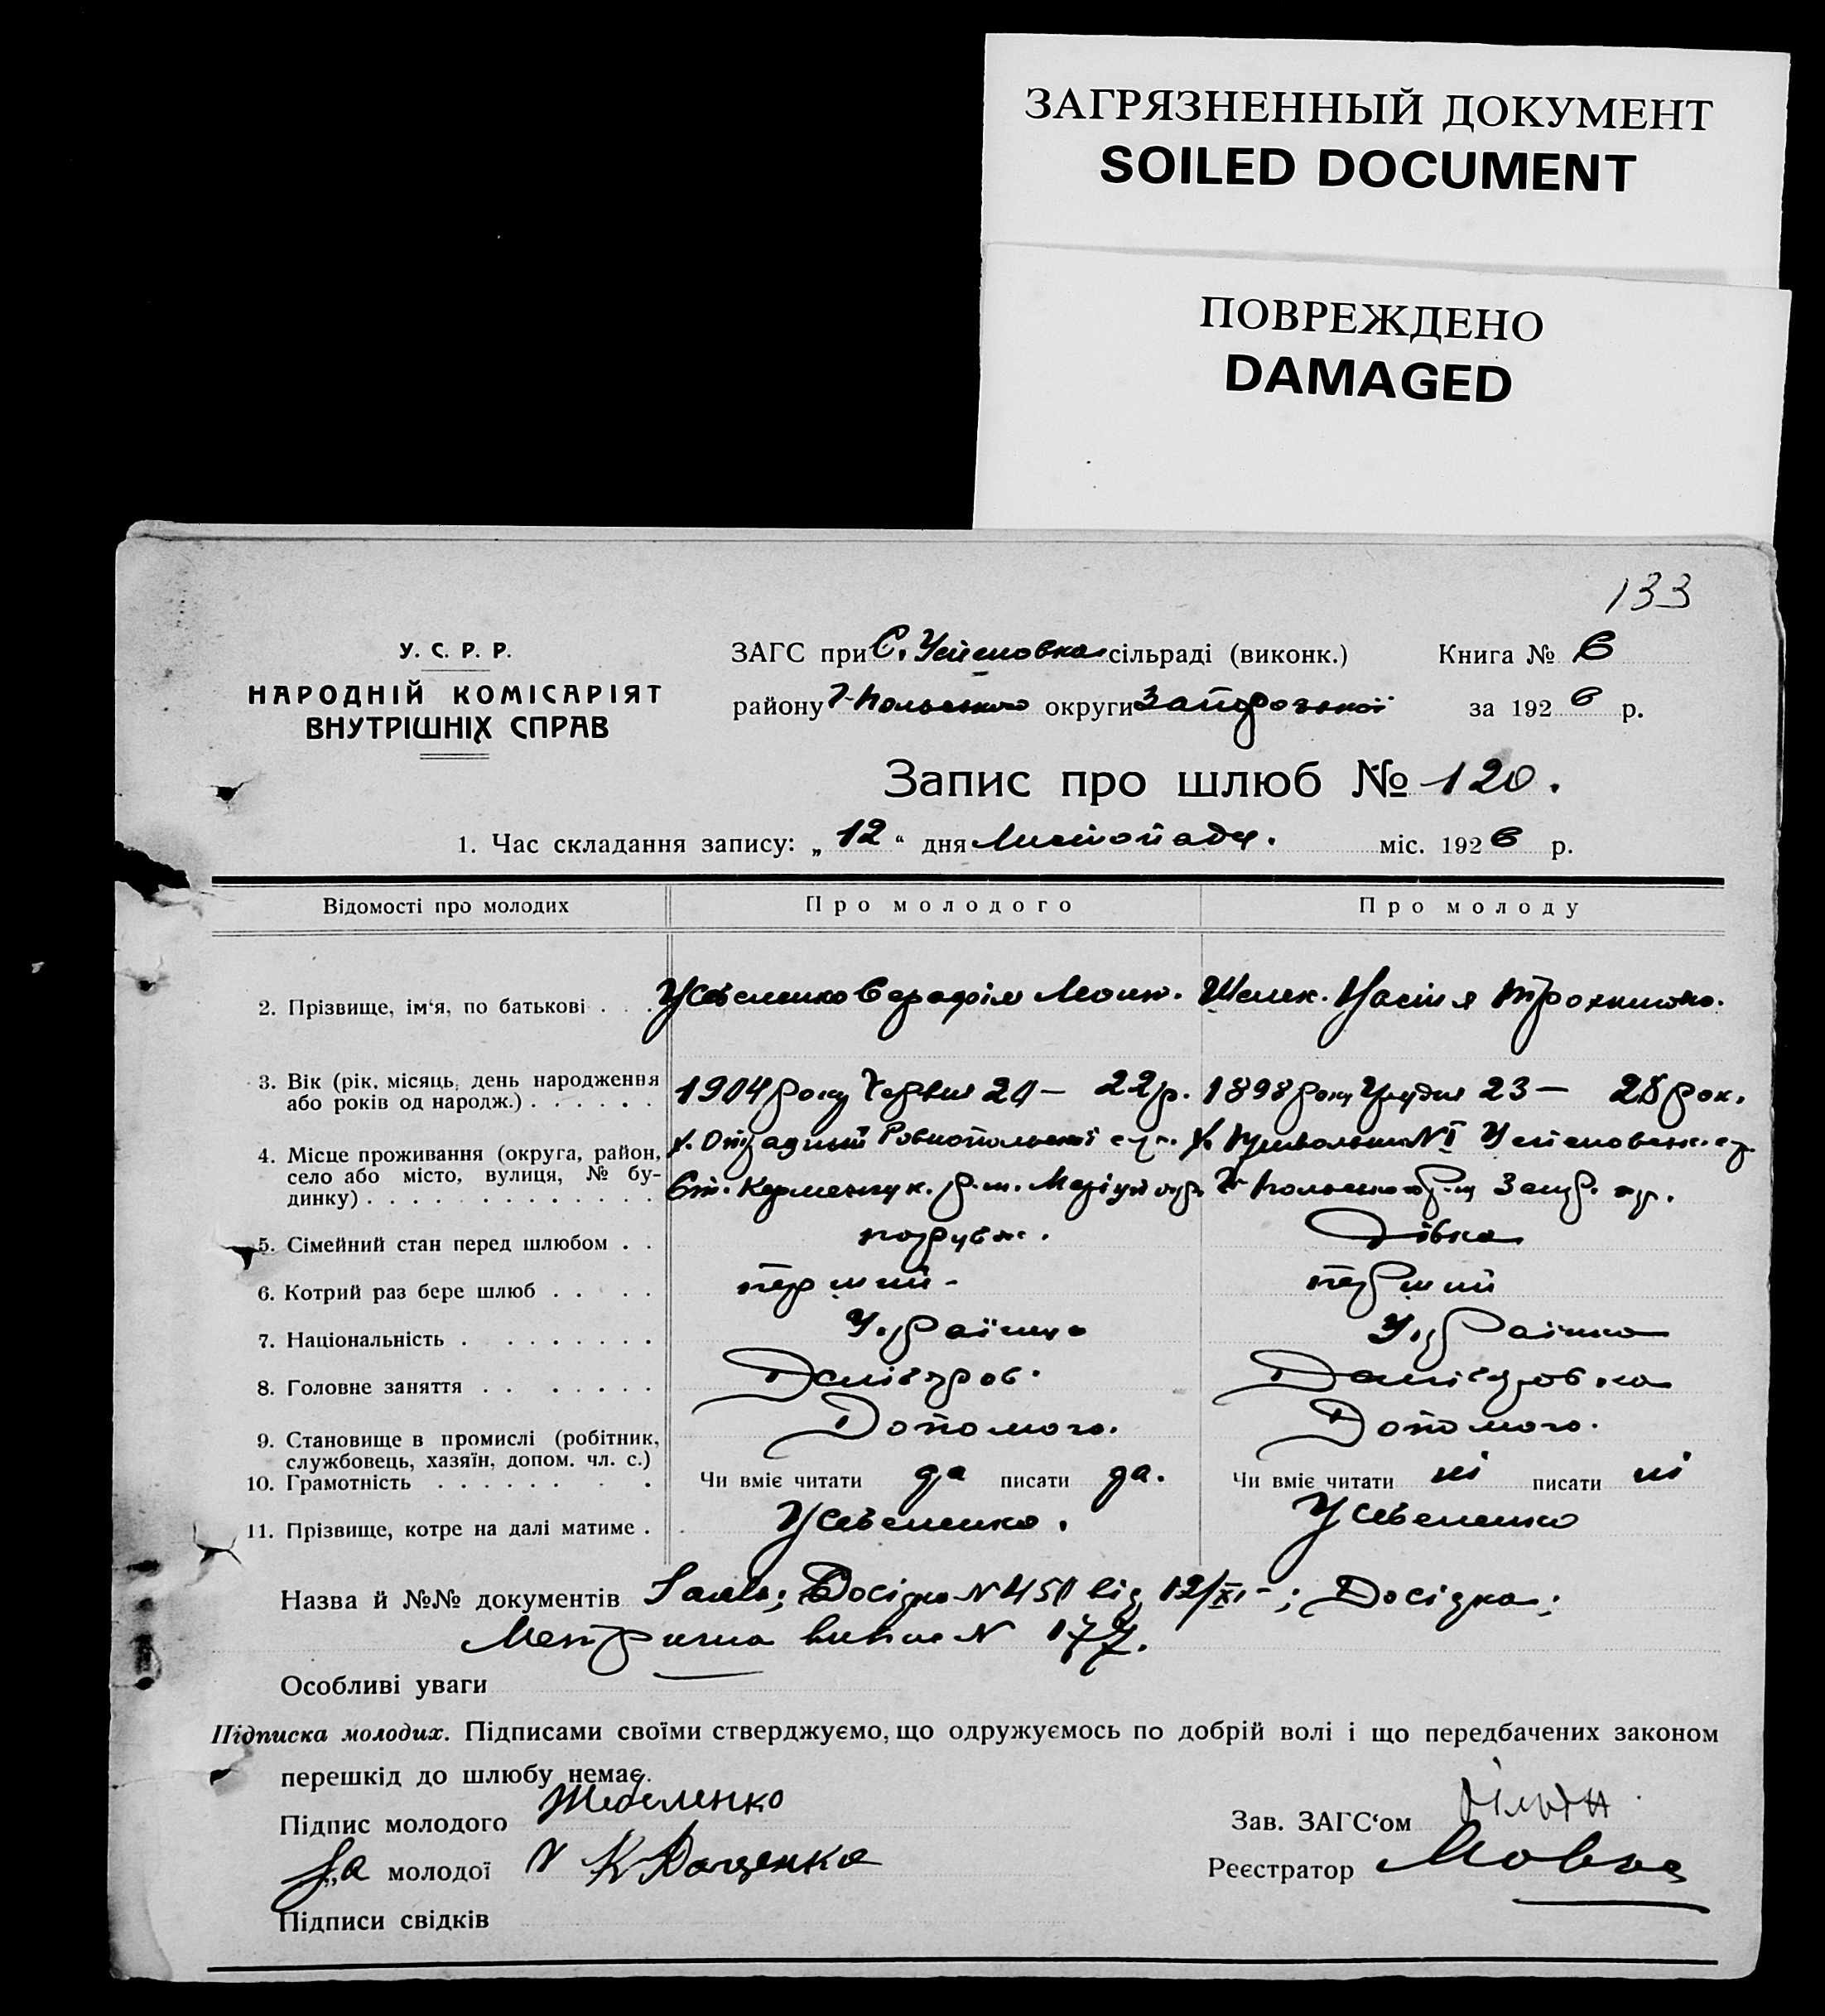 ЗАГРЯЗНЕННЫЙ ДОКУМЕНТ
SOILED DOCUMENT
ПОВРЕЖДЕНО
DAMAGED
133
У. С. Р. Р.
НАРОДНІЙ КОМІСАРІЯТ
ВНУТРІШНІХ СПРАВ
ЗАГС при С. Успеновка сільраді (виконк.) Книга № 6
району Г-Польського округи Запорозької за 1926 р.
Запис про шлюб № 120.
1. Час складання запису: „ 12 “ дня Листопада. міс. 1926 р.
Відомості про молодих Про молодого Про молоду
2. Прізвище, ім‘я, по батькові . . . Серафім Шелик. Настя
3. Вік (рік, місяць, день народження
або років од народж.) . . . . . . 1904 року Червня 20 — 22 р. 1898 року Грудня 23 — 28 рок.
4. Місце проживання (округа, район,
село або місто, вулиця, № бу-
динку) . . . . . . . . . . . . х. Отрадный Ровнопольської с/р. Ст. Керменчук. р-н. Маріуп окр. х. Привольный № I Успеновськ. с/р Г Польського р-ну Запор. окр.
5. Сімейний стан перед шлюбом . . парубок. Дівка
6. Котрий раз бере шлюб . . . . перший - перший
7. Національність . . . . . . . . Українка
8. Головне заняття . . . . . . .
9. Становище в промислі (робітник,
службовець, хазяїн, допом. чл. с.) Допомого. Допомого.
10. Грамотність . . . . . . . . Чи вміє читати да писати да. Чи вміє читати ні писати ні
11. Прізвище, котре на далі матиме .
Назва й №№ документів Заява; Досідка № 450 від 12/XI - ; Досідка;
Метрична випис № 177.
Особливі уваги
Підписка молодих. Підписами своїми стверджуємо, що одружуємось по добрій волі і що передбачених законом
перешкід до шлюбу немає.
Підпис молодого Зав. ЗАГС‘ом
За „ молодої Реєстратор
Підписи свідків